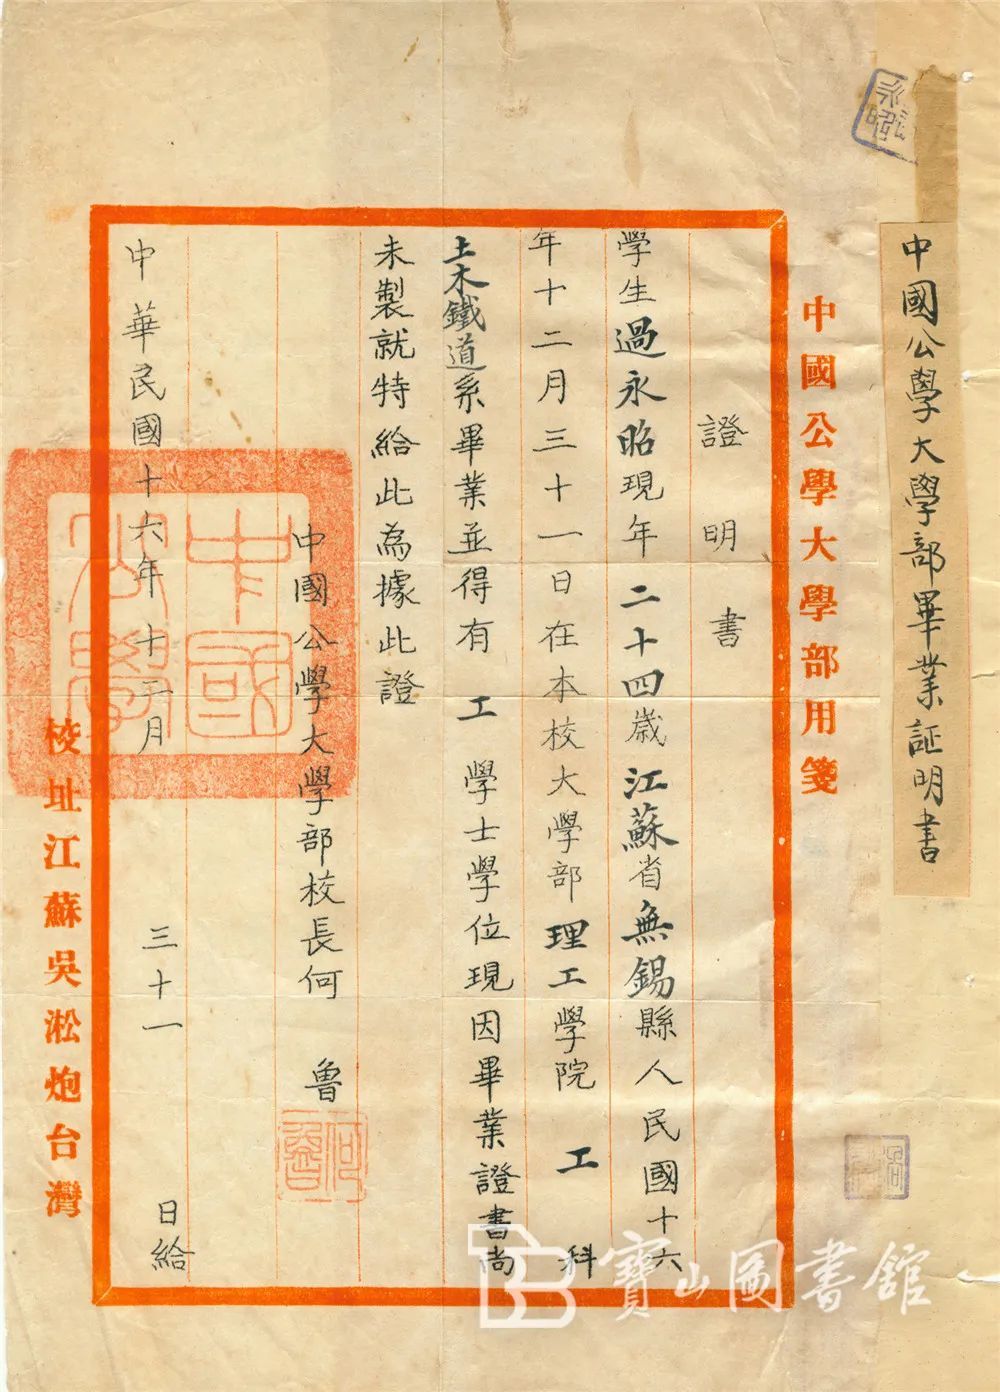 中國公學大學部畢業証明書
中國公學大學部用箋
證明書
學生過永昭現年二十四歲江蘇省無錫縣人民國十六
年十二月三十一日在本校大學部理工學院工科
土木鐵道系畢業並得有工學士學位現因畢業證書尚
未製就特給此為據此證
中國公學大學部校長何魯
何魯
中華民國十六年十二月三十一日給
中國公學
校址江蘇吳淞炮台灣
寶山圖書館